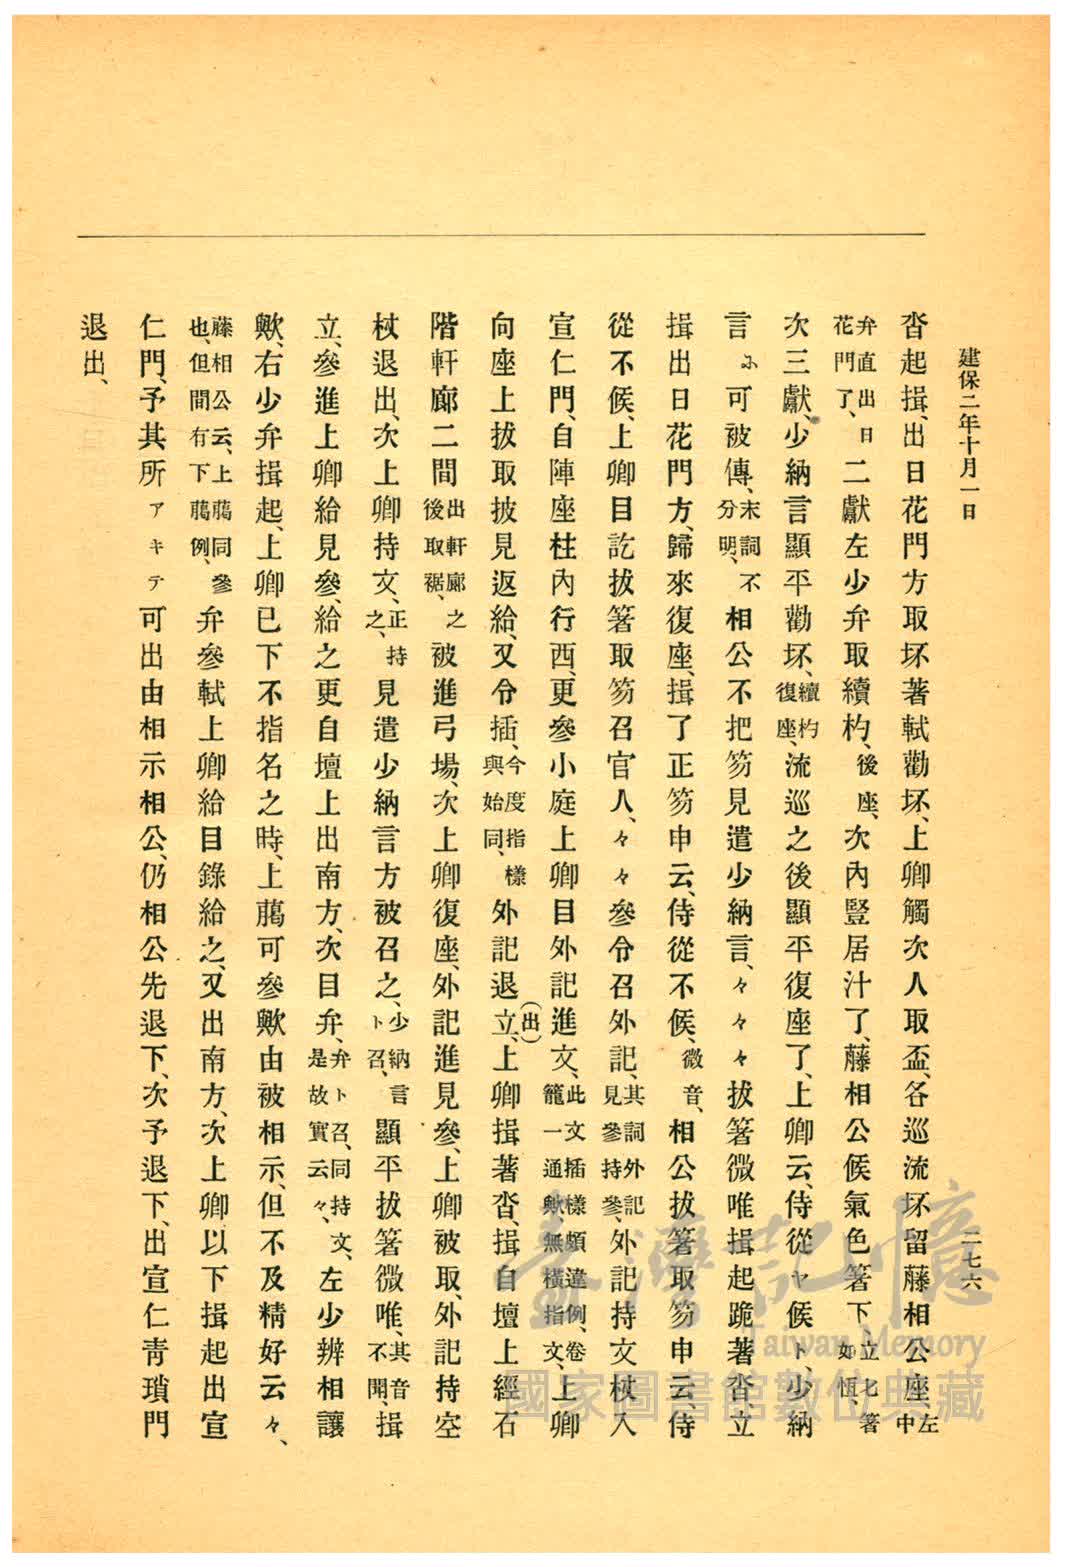 建保二年十月一日
二七六
沓起揖、出日花門方取坏著軾勸坏、上卿觸次人取盃、各巡流坏留藤相公座、左中
弁直出日花門了、二獻左少弁取續杓、後座、次內豎居汁了、藤相公候氣色箸下立匕箸如恆
次三獻、少納言顯平勸坏、續杓復座、流巡之後顯平復座了、上卿云、侍從ヤ候ト、少納
言ニ可被傳、末詞不分明、相公不把笏見遣少納言、々々々拔箸微唯揖起跪著沓、立
揖出日花門方、歸來復座、揖了正笏申云、侍從不候、微音、相公拔箸取笏申云、侍
從不候、上卿目訖拔箸取笏召官人、々々參令召外記、其詞外記見參持參、外記持文杖入
宣仁門、自陣座柱內行西、更參小庭上卿目外記進文、此文插樣頗違例、卷籠一通歟無橫指文、上卿
向座上拔取披見返給、又令插、今度指樣與始同、外記退立、(出)上卿揖著沓、揖自壇上經石
階軒廊二間出軒廊之後取裾、被進弓場、次上卿復座、外記進見參、上卿被取、外記持空
杖退出、次上卿持文、正持之、見遣少納言方被召之、少納言ト召、顯平拔箸微唯、其音不聞、揖
立、參進上卿給見參、給之更自壇上出南方、次目弁、弁ト召、同持文、是故實云々、左少辨相讓
歟、右少弁揖起、上卿已下不指名之時、上﨟可參歟由被相示、但不及精好云々、
藤相公云、上﨟同參也、但間有下﨟例、弁參軾上卿給目錄給之、又出南方、次上卿以下揖起出宣
仁門、予其所アキテ可出由相示相公、仍相公先退下、次予退下、出宣仁青瑣門
退出、
臺灣記憶
Taiwan Memory
國家圖書館數位典藏